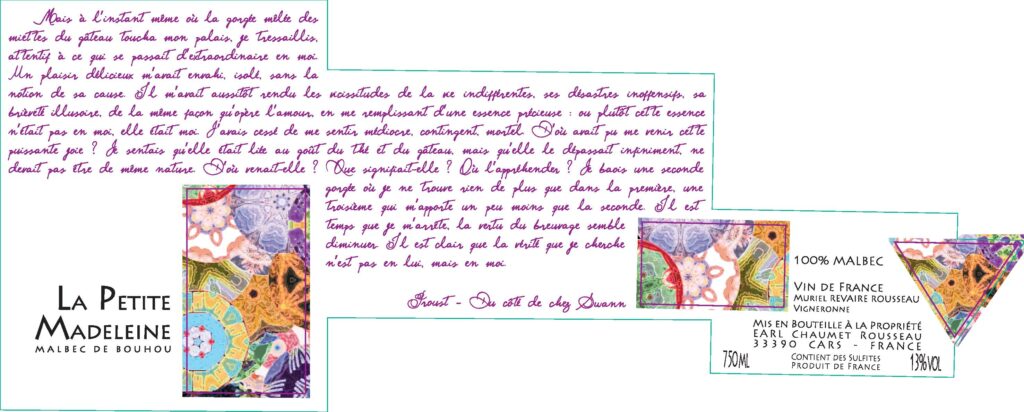 Mais à l'instant même où la gorgée mêlée des
miettes du gâteau toucha mon palais, je tressaillis,
attentif à ce qui se passait d'extraordinaire en moi.
Un plaisir délicieux m'avait envahi, isolé, sans la
notion de sa cause. Il m'avait aussitôt rendu les vicissitudes de la vie indifférentes, ses désastres inoffensifs, sa
brièveté illusoire, de la même façon qu'opère l'amour, en me remplissant d'une essence précieuse : ou plutôt cette essence
n'était pas en moi, elle était moi. J'avais cessé de me sentir médiocre, contingent, mortel. D'où avait pu me venir cette
puissante joie ? Je sentais qu'elle était liée au goût du thé et du gâteau, mais qu'elle le dépassait infiniment, ne
devait pas être de même nature. D'où venait-elle ? Que signifiait-elle ? Où l'appréhender ? Je bois une seconde
gorgée où je ne trouve rien de plus que dans la première, une
troisième qui m'apporte un peu moins que la seconde. Il est
temps que je m'arrête, la vertu du breuvage semble
diminuer. Il est clair que la vérité que je cherche
n'est pas en lui, mais en moi.
Proust - Du côté de chez Swann
La Petite
Madeleine
MALBEC DE BOUHOU
100% MALBEC
VIN DE FRANCE
MURIEL REVAIRE ROUSSEAU
VIGNERONNE
MIS EN BOUTEILLE À LA PROPRIÉTÉ
EARL CHAUMET ROUSSEAU
33390 CARS - FRANCE
750ML
CONTIENT DES SULFITES
PRODUIT DE FRANCE
13%VOL